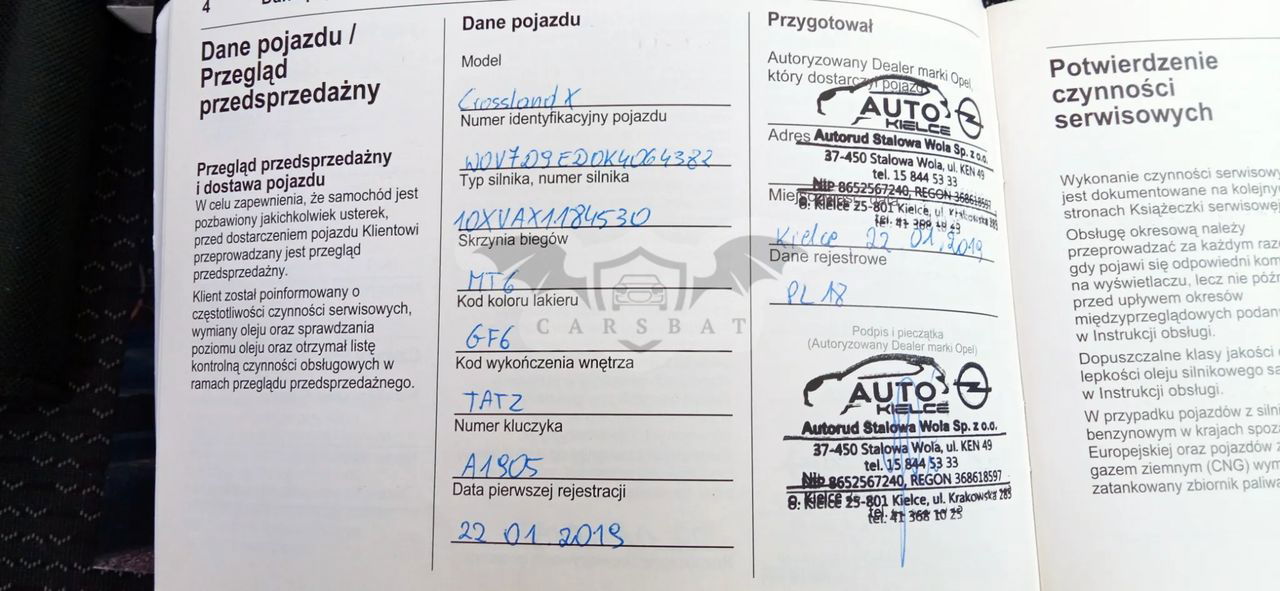 4
Dane pojazdu /
Przegląd
przedsprzedażny
Przegląd przedsprzedażny
i dostawa pojazdu
W celu zapewnienia, że samochód jest
pozbawiony jakichkolwiek usterek,
przed dostarczeniem pojazdu Klientowi
przeprowadzany jest przegląd
przedsprzedażny.
Klient został poinformowany o
częstotliwości czynności serwisowych,
wymiany oleju oraz sprawdzania
poziomu oleju oraz otrzymał listę
kontrolną czynności obsługowych w
ramach przeglądu przedsprzedażnego.
Dane pojazdu
Model
Crossland X
Numer identyfikacyjny pojazdu
W0V7D9ED0K4064382
Typ silnika, numer silnika
10XVAX1184530
Skrzynia biegów
MT6
Kod koloru lakieru
GF6
Kod wykończenia wnętrza
TATZ
Numer kluczyka
A1905
Data pierwszej rejestracji
22 01 2019
Przygotował
Autoryzowany Dealer marki Opel,
który dostarczył pojazd
AUTO
KIELCE
Adres Autorud Stalowa Wola Sp. z o.o.
37-450 Stalowa Wola, ul. KEN 49
tel. 15 844 53 33
NIP 8652567240, REGON 368618597
O. Kielce 25-801 Kielce, ul. Krakowska 285
tel. 41 368 10 23
Kielce 22 01.2019
Dane rejestrowe
PL 18
Podpis i pieczątka
(Autoryzowany Dealer marki Opel)
AUTO
KIELCE
Autorud Stalowa Wola Sp. z o.o.
37-450 Stalowa Wola, ul. KEN 49
tel. 15 844 53 33
NIP 8652567240, REGON 368618597
O. Kielce 25-801 Kielce, ul. Krakowska 285
tel. 41 368 10 23
Potwierdzenie
czynności
serwisowych
Wykonanie czynności serwisowy
jest dokumentowane na kolejny
stronach Książeczki serwisowej
Obsługę okresową należy
przeprowadzać za każdym raze
gdy pojawi się odpowiedni kom
na wyświetlaczu, lecz nie późn
przed upływem okresów
międzyprzeglądowych podan
w Instrukcji obsługi.
Dopuszczalne klasy jakości
lepkości oleju silnikowego są
w Instrukcji obsługi.
W przypadku pojazdów z silni
benzynowym w krajach spoza
Europejskiej oraz pojazdów z
gazem ziemnym (CNG) wym
zatankowany zbiornik paliwa
CARSBAT